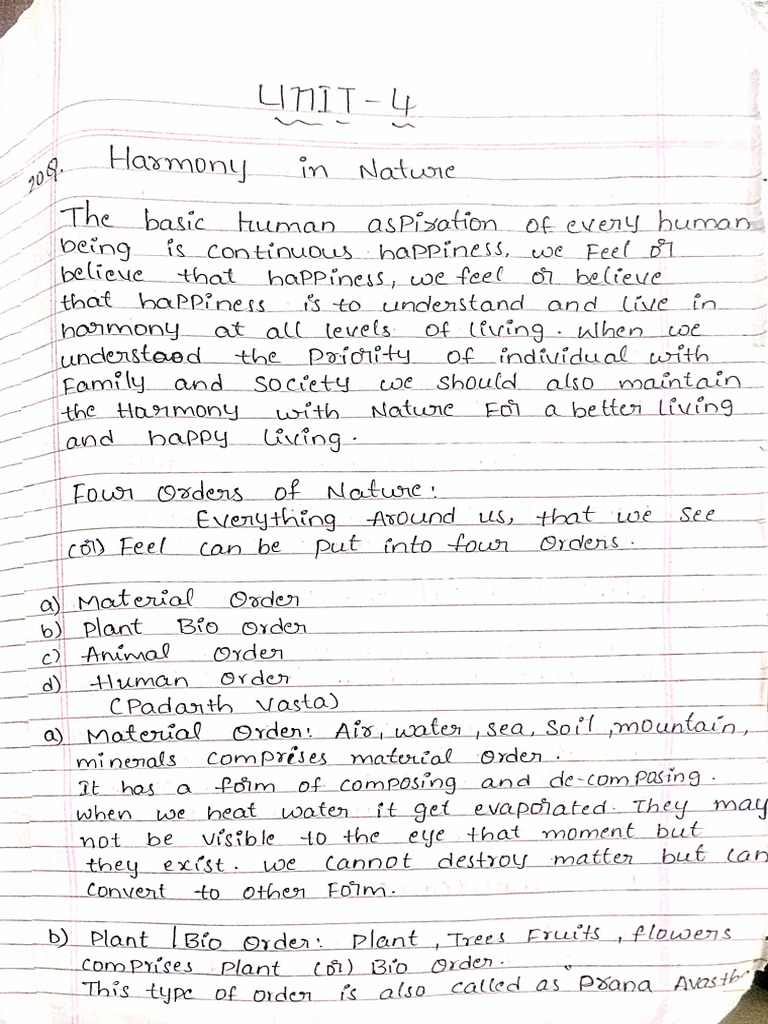 UNIT-4
20Q. Harmony in Nature
The basic human aspiration of every human
being is continuous happiness, we Feel or
believe that happiness, we feel or believe
that happiness is to understand and live in
harmony at all levels of living. When we
understood the Priority of individual with
Family and Society we should also maintain
the Harmony with Nature For a better living
and happy living.
Four Orders of Nature:
Everything Around us, that we see
(or) Feel can be put into four Orders.
a) Material Order
b) Plant Bio Order
c) Animal Order
d) Human Order
(Padarth Vasta)
a) Material Order: Air, water, sea, Soil, mountain,
minerals comprises material order.
It has a form of composing and de-composing.
When we heat water it get evaporated. They may
not be visible to the eye that moment but
they exist. We cannot destroy matter but can
convert to other Form.
b) Plant / Bio Order: Plant, Trees Fruits, flowers
comprises Plant (or) Bio Order.
This type of order is also called as "Prana Avasth